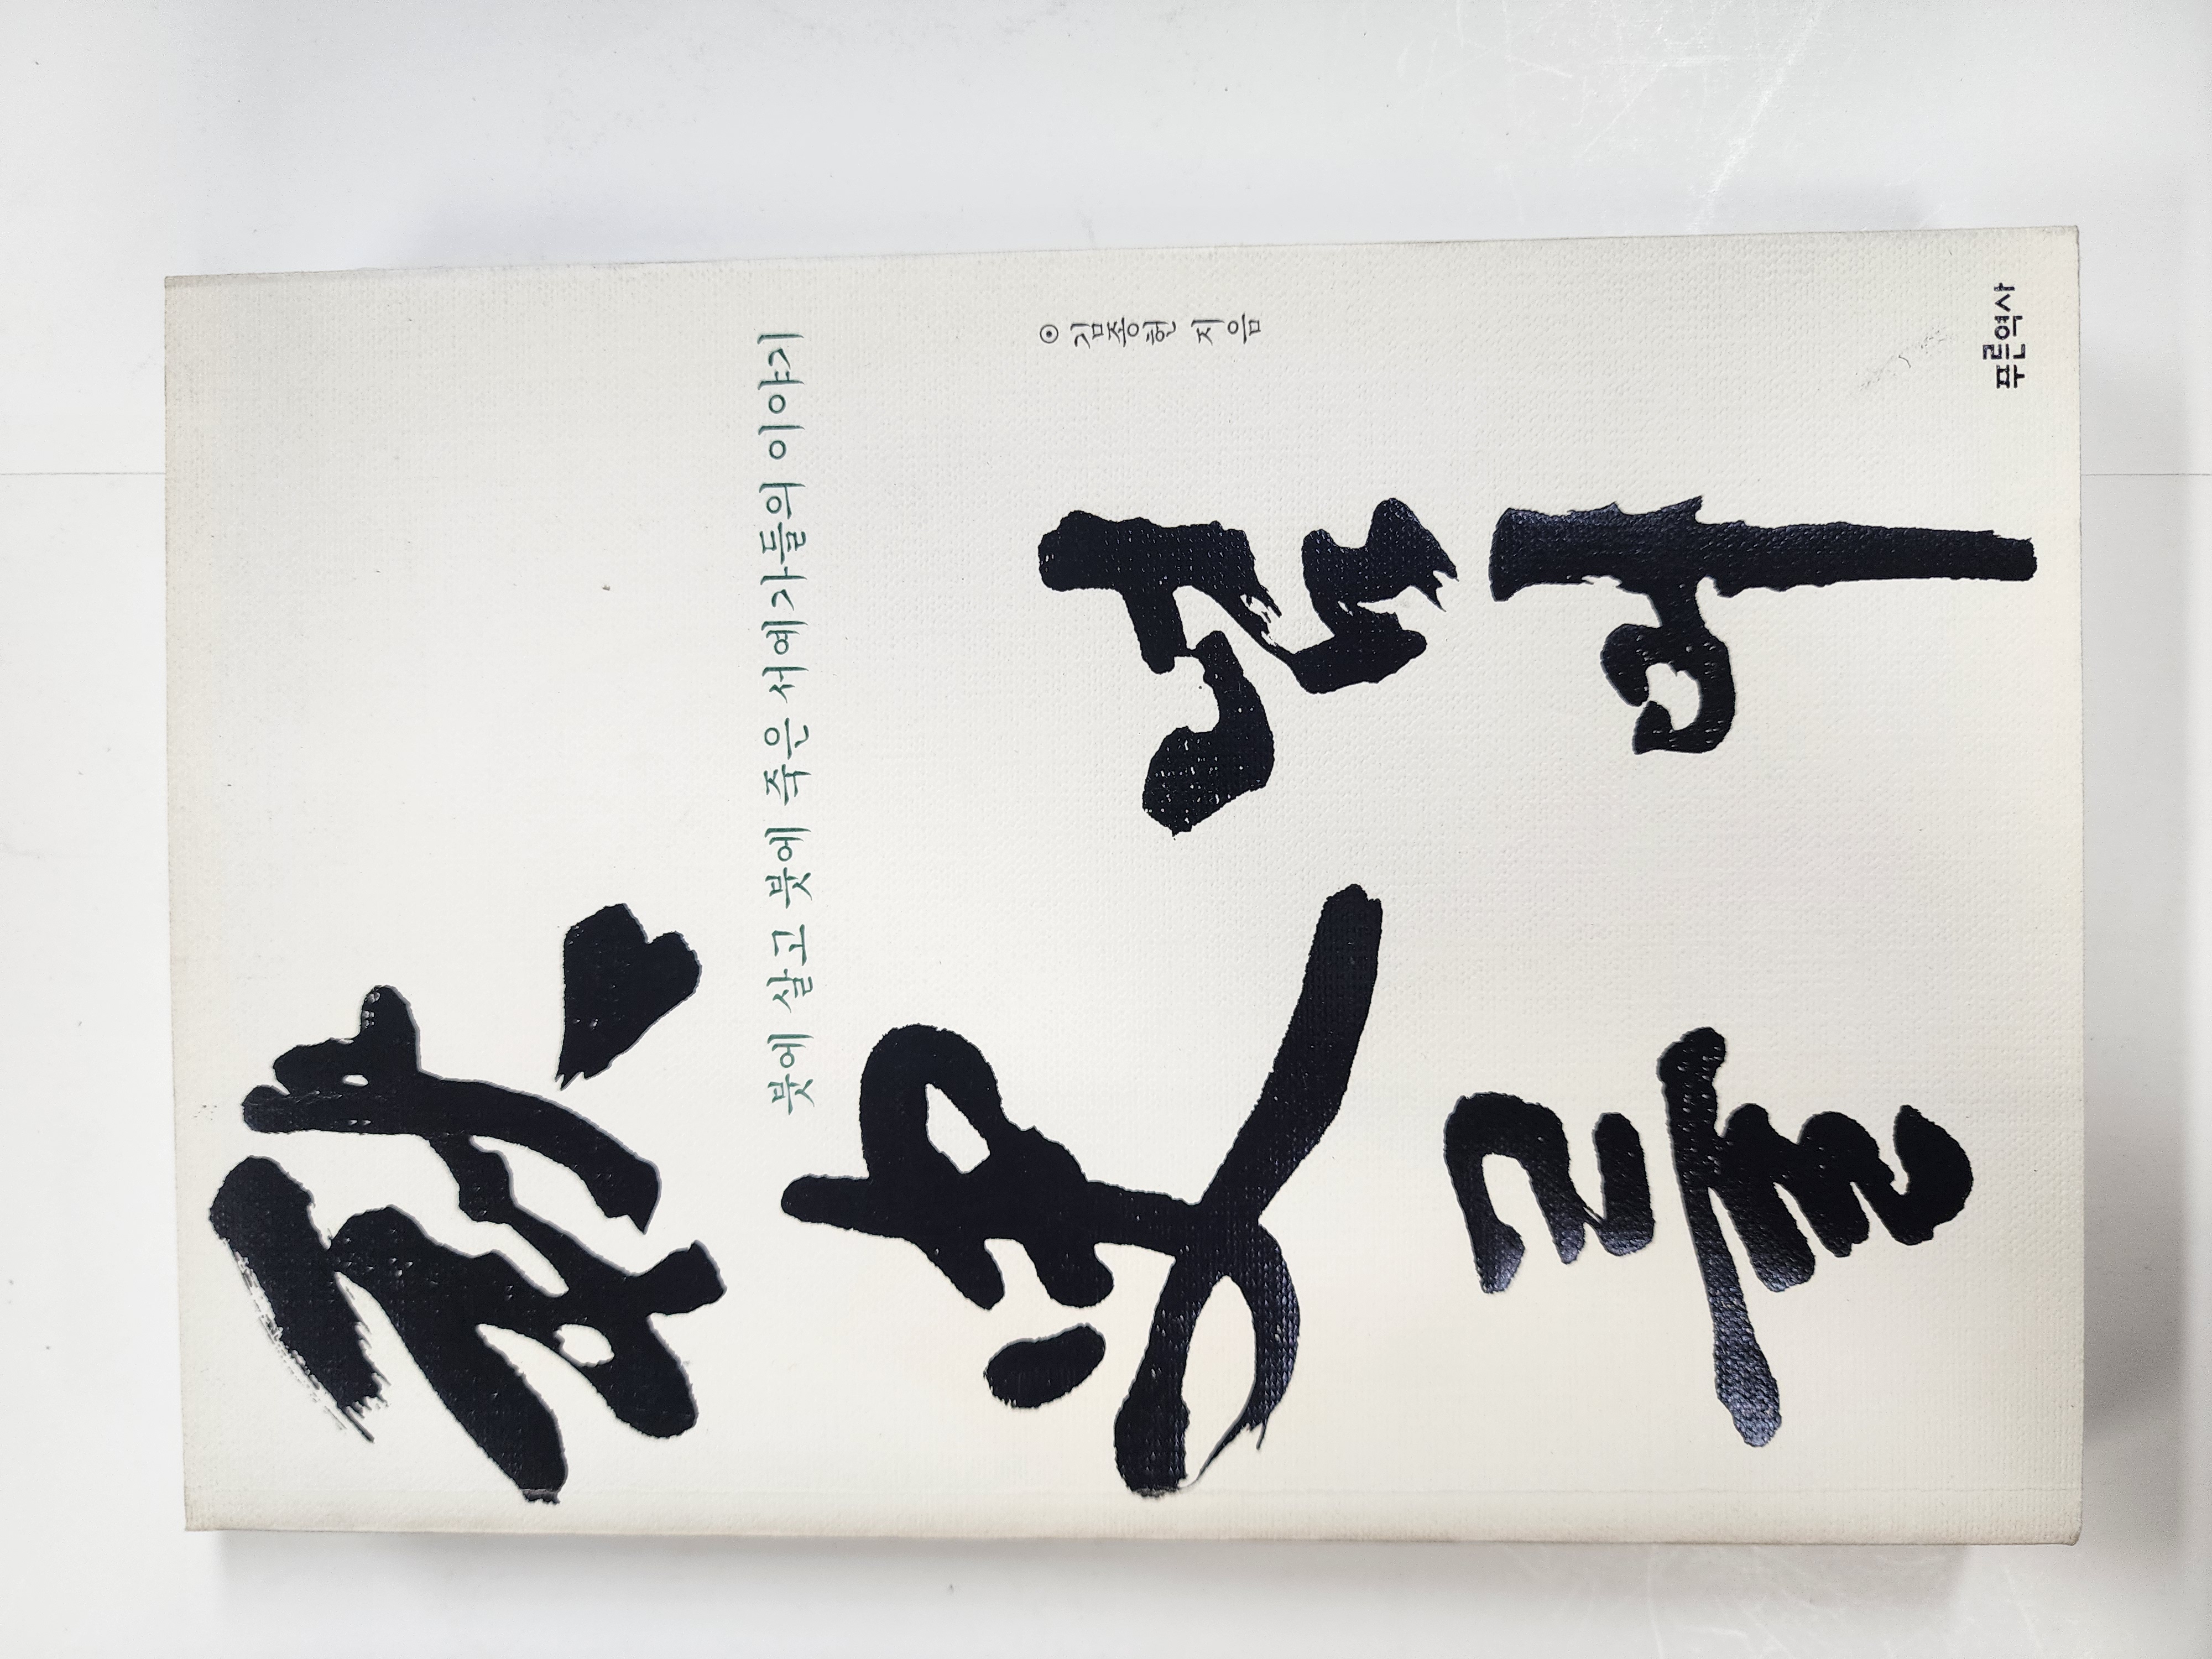 秋史를
넘어
붓에 살고 붓에 죽은 서예가들의 이야기
⊙ 김종헌 지음
푸른역사